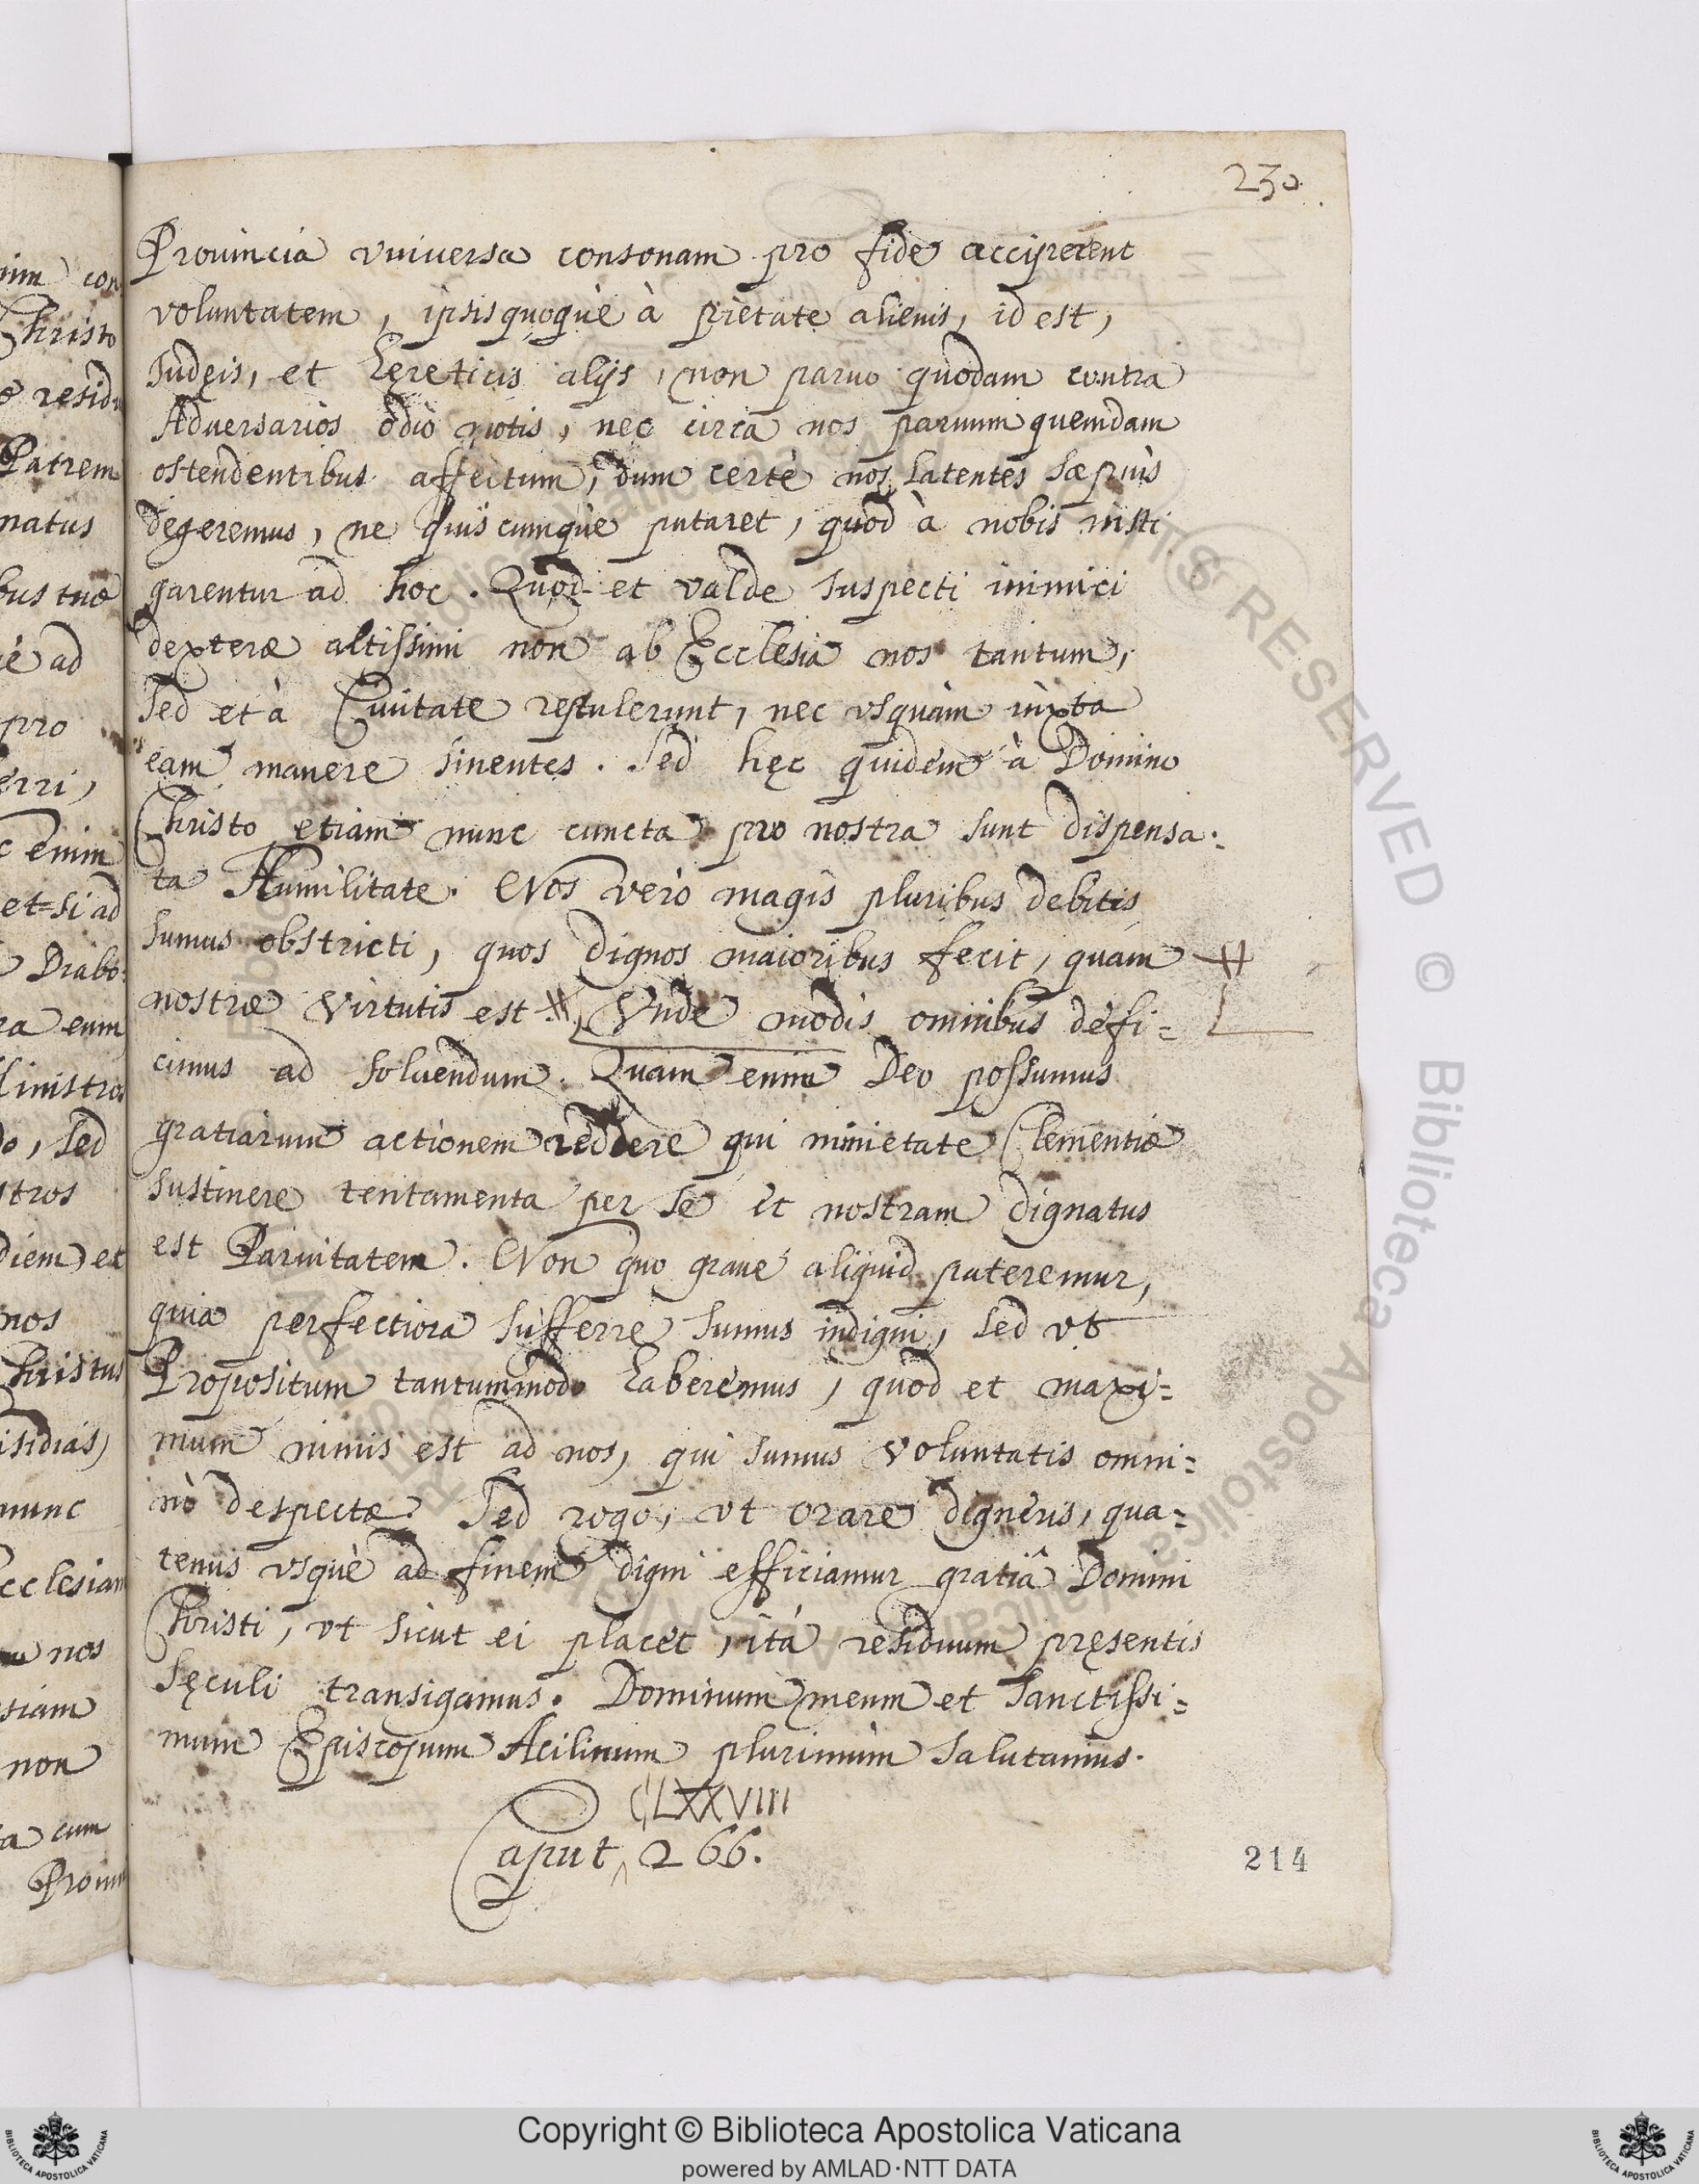 230
Prouincia vniuersa consonam pro fide accijperent
voluntatem, ipsis quoquè à pietate alienis, id est,
Iudęis, et hęreticis alijs, non paruo quodam contra
Aduersarios odio motis, nec circa nos paruum quemdam
ostendentibus affectum, dum certè nos latentes sæpiùs
degeremus, ne quiscumquè putaret, quod à nobis insti
garentur ad hoc. Quod et valde suspecti inimici
dexteræ altissimi non ab Ecclesia nos tantum,
sed et à Ciuitate repulerunt, nec vsquàm iùxta
eam manere sinentes. Sed hęc quidem à Domino
Christo etiam nunc cuncta pro nostra sunt dispensa-
ta Humilitate. Nos verò magis pluribus debitis
sumus obstricti, quos dignos maioribus fecit, quàm
nostræ virtutis est, Vnde modis omnibus defi=
cimus ad soluendum. Quam enim Deo possumus
gratiarum actionem reddere qui nimietate Clementiæ
sustinere tentamenta per se et nostram dignatus
est Paruitatem. Non quo graue aliquid pateremur,
quia perfectiora sufferre sumus indigni, sed vt
Propositum tantummodo haberemus, quod et maxi=
mum nimis est ad nos, qui sumus voluntatis omni=
nò despectæ. Sed rogo, vt orare digneris, qua=
tenus vsquè ad finem digni efficiamur gratiâ Domini
Christi, vt sicut ei placet, ità residuum pręsentis
sęculi transigamus. Dominum meum et sanctissi=
mum Episcopum Acilinum plurimùm salutamus.
CLXXVIII
Caput 266.
214
Copyright © Biblioteca Apostolica Vaticana
powered by AMLAD·NTT DATA